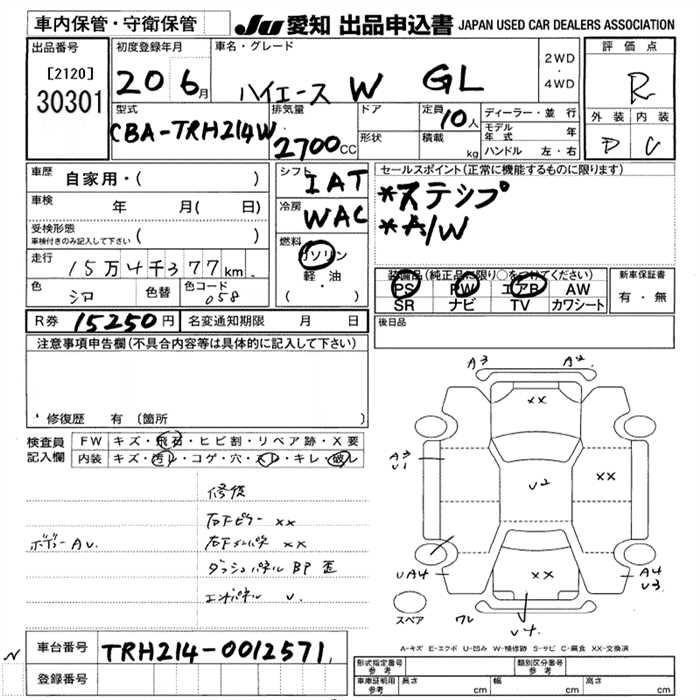 車内保管・守衛保管
JU 愛知 出品申込書 JAPAN USED CAR DEALERS ASSOCIATION
出品番号
[2120]
30301
初度登録年月
20 6月
車名・グレード
ハイエース W GL
2WD
・
4WD
評価点
R
外装 内装
D C
型式
CBA-TRH214W
排気量
2700cc
ドア
形状
定員 10人
積載 kg
ディーラー・並行
モデル年式 年
ハンドル 左・右
車歴 自家用・( )
車検 年 月( 日)
受検形態
車検付きのみ記入して下さい ( )
走行 15万4千377km
色 シロ 色替 色コード 058
シフト IAT
冷房 WAC
燃料 ガソリン
軽・油
( )
セールスポイント(正常に機能するものに限ります)
*ステップ
*A/W
装備品(純正品に限り○をつけてください)
PS PW エアB AW
SR ナビ TV カワシート
新車保証書
有・無
R券 15250円 名変通知期限 月 日
後日品
注意事項申告欄(不具合内容等は具体的に記入して下さい)
修復歴 有 (箇所 )
検査員記入欄
FW キズ・飛石・ヒビ割・リペア跡・X要
内装 キズ・汚レ・コゲ・穴・スレ・キレ・破レ
修復
右Fピラー xx
ボデーAU. 右Fインパネ xx
ダッシュパネル BP 歪
エンドパネル U.
A3 A2
xx
A3
U1
U2
xx
xx
UA4
A4
U3
ワレ
U4.
スペア
A-キズ E-エクボ U-凹み W-補修跡 S-サビ C-腐食 XX-交換済
N
車台番号 TRH214-0012571
登録番号
形式指定番号
参考
類別区分番号
参考
車庫証明用
参考
長さ cm 幅 cm 高さ cm